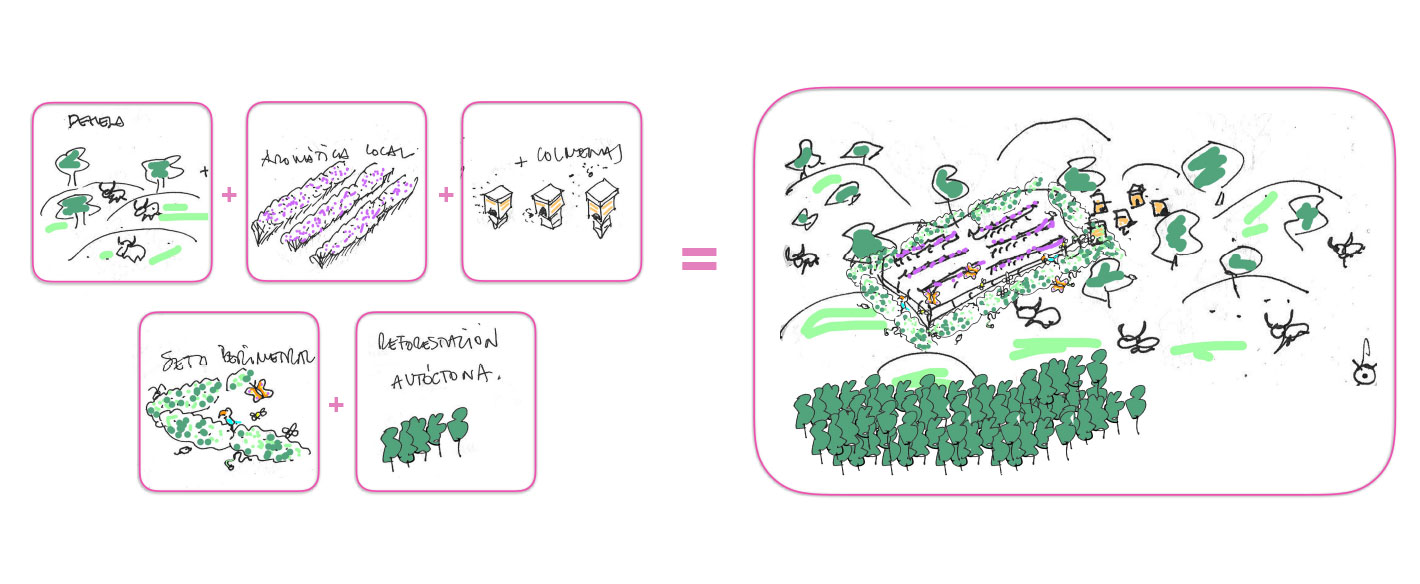 DEHESA
+
+
AROMÁTICA LOCAL
+
+ COLMENAS
=
SETO PERIMETRAL
+
REFORESTACIÓN
AUTÓCTONA.